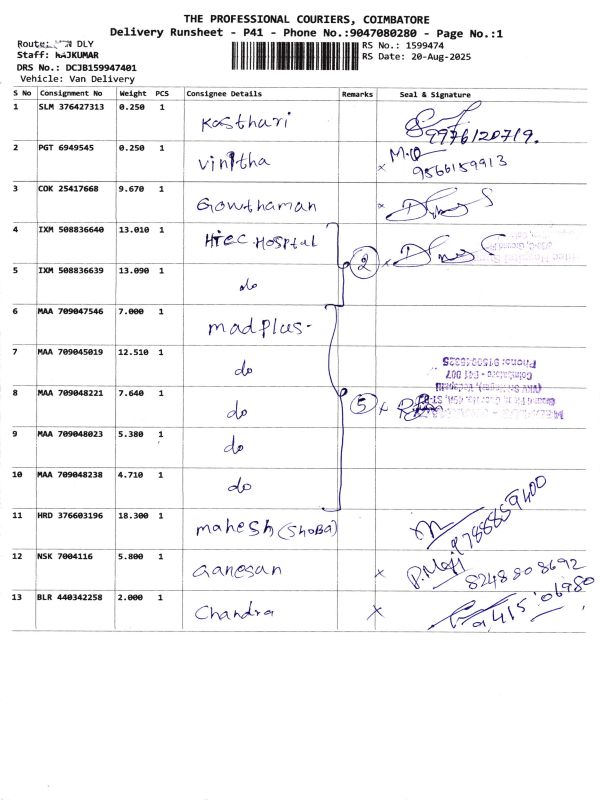 THE PROFESSIONAL COURIERS, COIMBATORE
Delivery Runsheet - P41 - Phone No.:9047080280 - Page No.:1
Route: DLY
RS No.: 1599474
Staff: RAJKUMAR
RS Date: 20-Aug-2025
DRS No.: DCJB159947401
Vehicle: Van Delivery
S No Consignment No Weight PCS Consignee Details Remarks Seal & Signature
1 SLM 376427313 0.250 1 Kasthari
9976120719.
2 PGT 6949545 0.250 1 Vinitha x M.
9566159913
3 COK 25417668 9.670 1 Gowthaman x
4 IXM 508836640 13.010 1 HTEC. Hospital
② x
5 IXM 508836639 13.090 1 do
6 MAA 709047546 7.000 1 madplus-
7 MAA 709045019 12.510 1 do
Coimbatore - 641 007
8 MAA 709048221 7.640 1 do ⑤ x
9 MAA 709048023 5.380 1 do
10 MAA 709048238 4.710 1 do
11 HRD 376603196 18.300 1 mahesh (SHOBA) 9788859400
12 NSK 7004116 5.800 1 Ganesan x P.Meji
8248808692
13 BLR 440342258 2.000 1 Chandra x